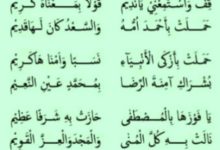 قِفْ وَاسْتَمِعْنِي يَانَدِيمْ قَوْلًا بِمَعْنَاهُ كَرِيمْ
حَمَلَتْ بِأَحْمَدَ أُمُّهُ وَالسَّعْدُ كَانَ لَهَا قَدِيمْ
حَمَلَتْ بِأَزْكَى الْأَنْبِيَاءِ نَسَبًا وَآمِنَةَ كَرِيمْ
بُشْرَاكِ آمِنَةُ الرِّضَا بِمُحَمَّدٍ عَيْنِ النَّعِيمْ
يَا فَوْزَهَا بِالْمُصْطَفَى حَازَتْ بِهِ شَرَفًا عَظِيمْ
نَالَتْ بِهِ كُلَّ الْمُنَى وَالْمَجْدَ وَالْعِزَّ الْقَوِيمْ